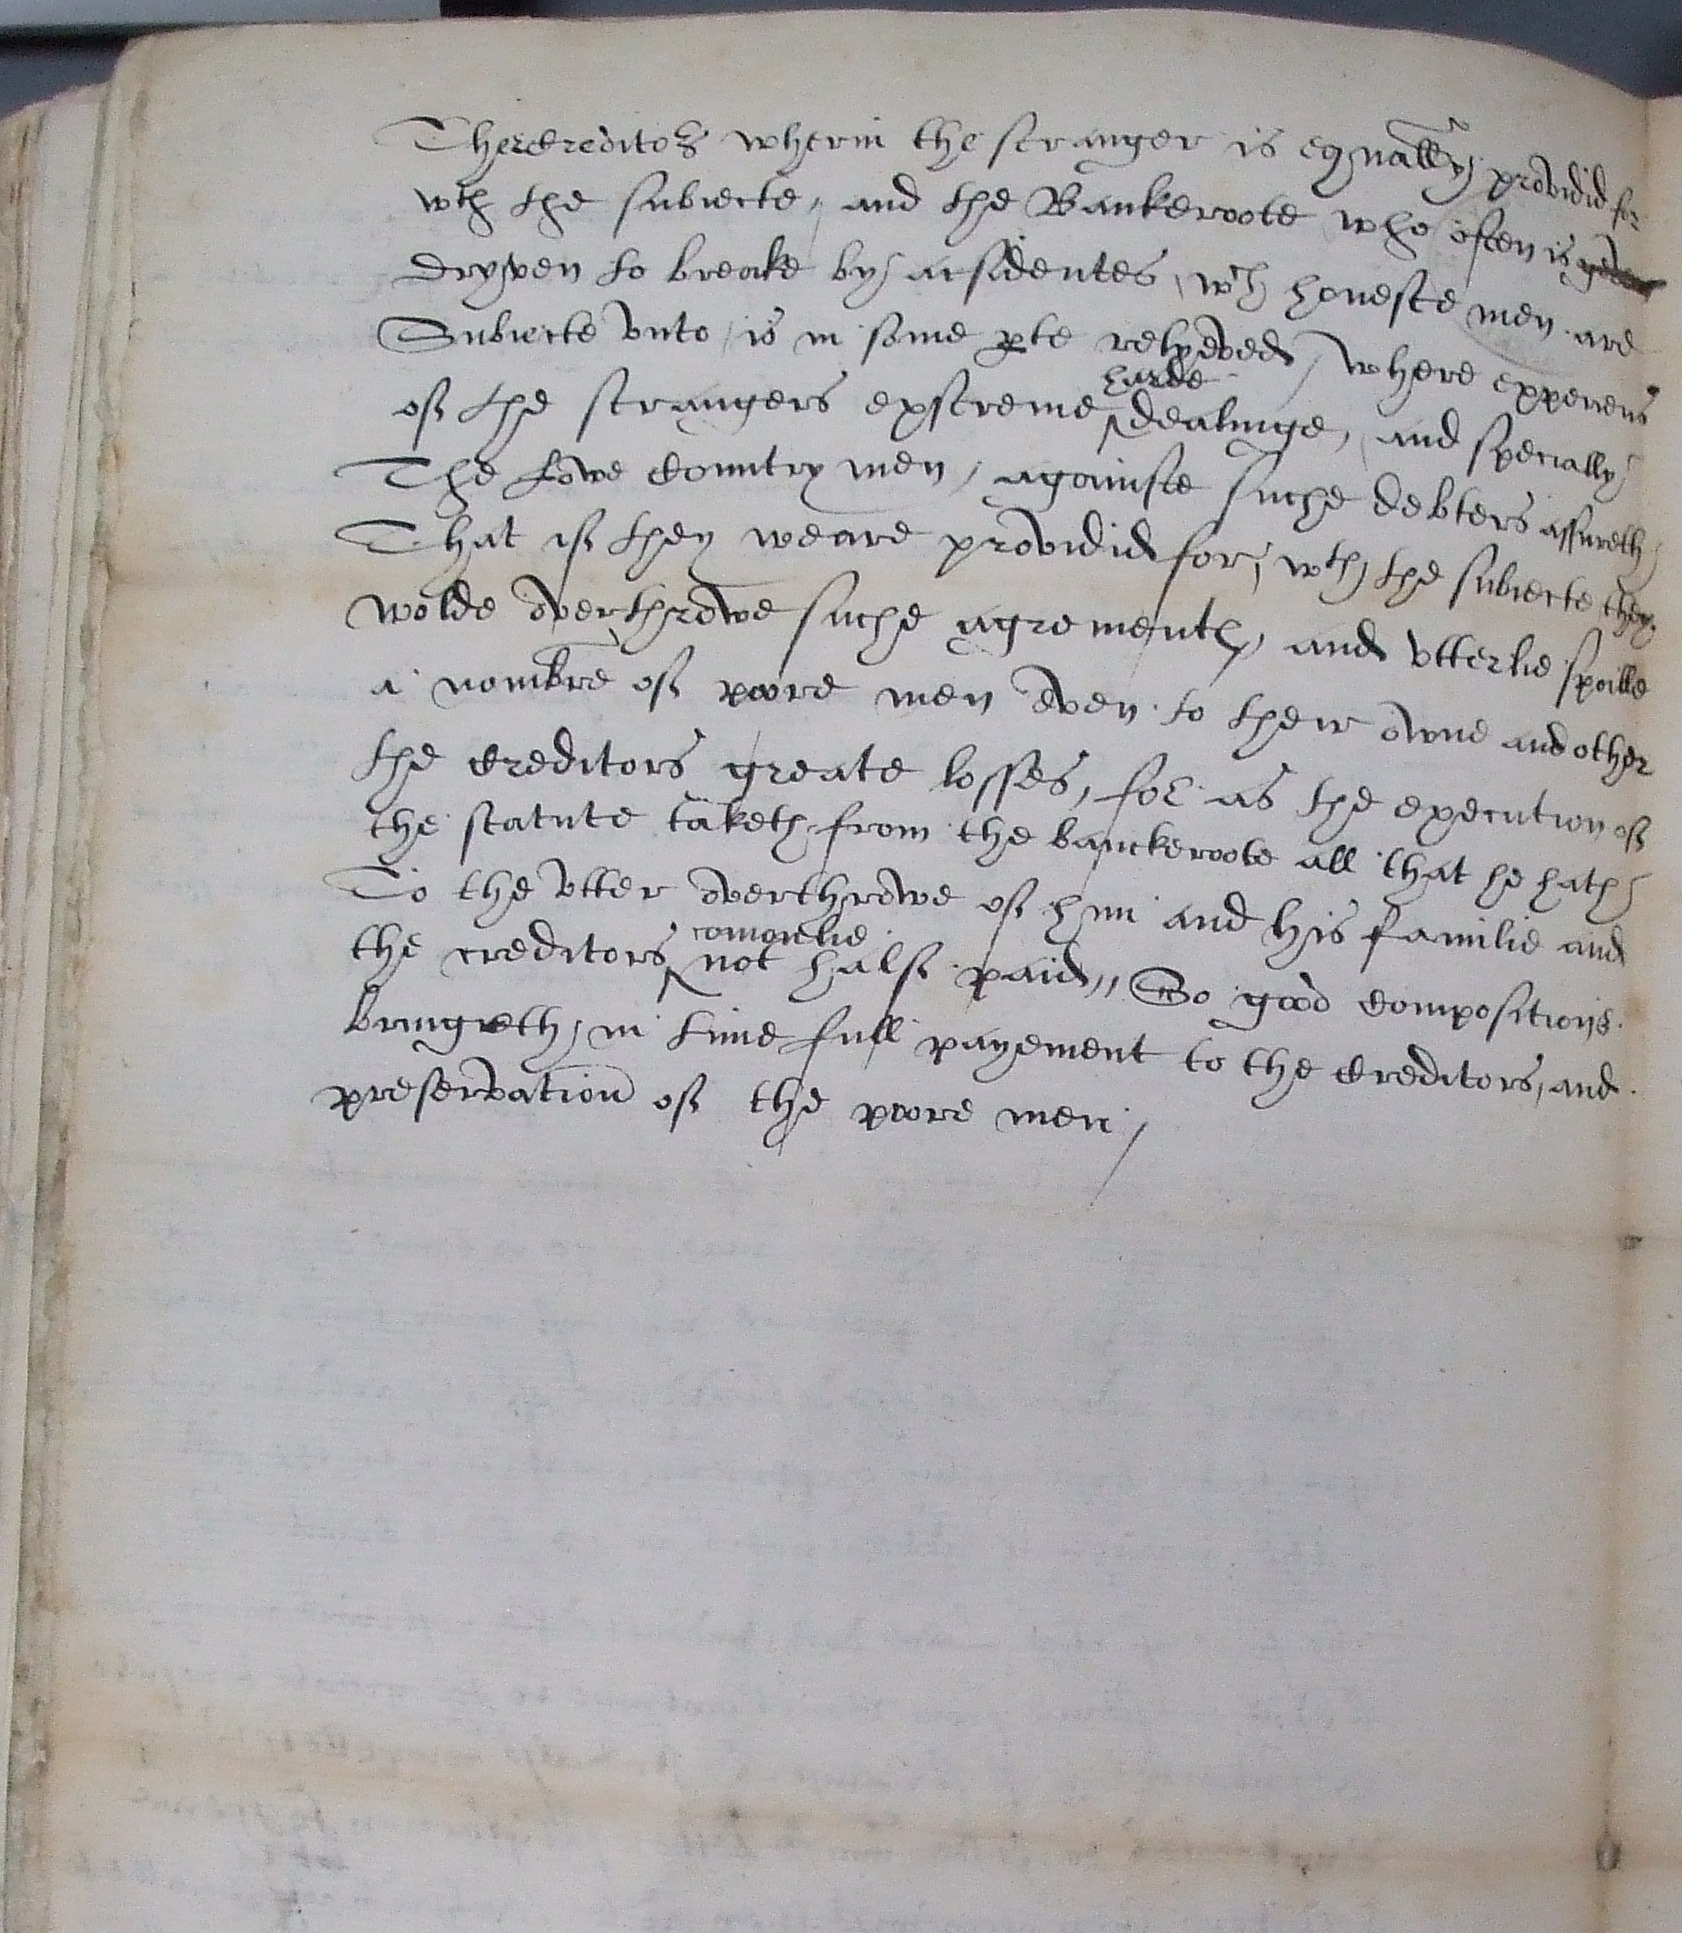 Thercreditors wherin the stranger is equally providid for
wth the subiecte, and the Bankeroote who often is
dryven to breake by acsidentes, wch honeste men are
Subiecte vnto, is in some pte relyeved, where experiens
harde
of the strangers exstreme ^ dealinge, and specially
The Lowe Countrymen, againste suche debters assureth
That if they weare providid for, wth the subiecte they
wolde overthrowe suche agrements, and vtterlie spoille
a nombre of poore men even to their owne and other
the Creditors greate losses, for as the execution of
the statute taketh from the banckeroote all that he hath
To the vtter overthrowe of him and his familie and
comonlie
the creditors ^ not half paid,, So good Compositions
bringeth in time full payement to the Creditors, and
preservation of the poore men,